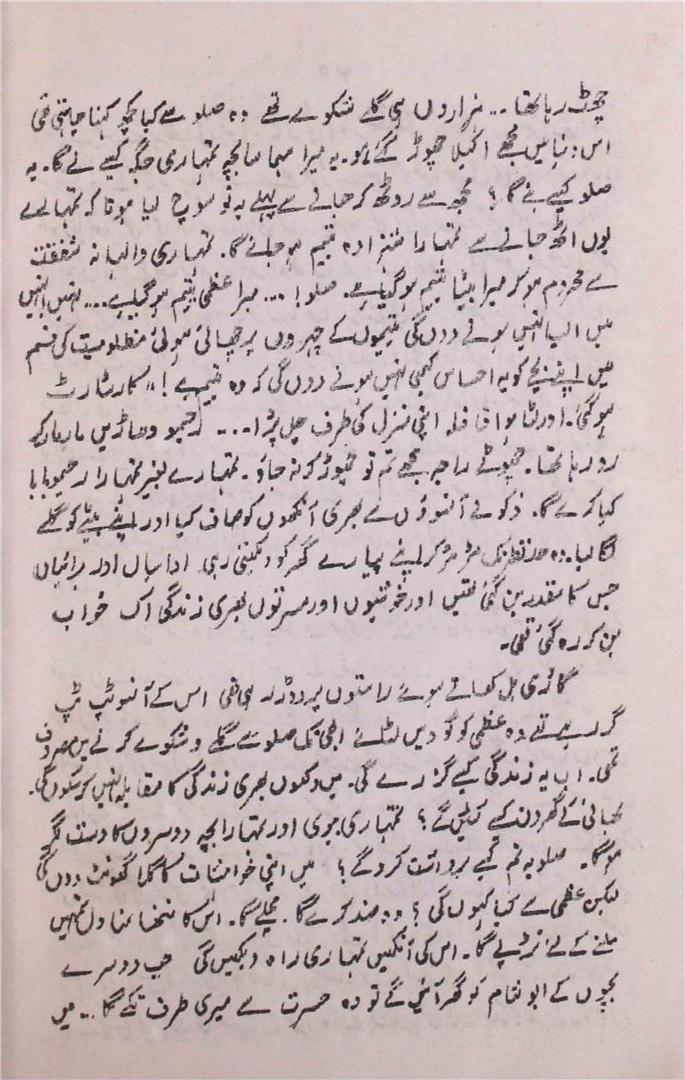 چھوٹ رہا تھا ... ہزاروں ہی گلے شکوے تھے وہ صلو سے کیا کچھ کہنا چاہتی تھی
اس دنیا میں مجھے اکیلا چھوڑ گئے ہو۔ یہ میرا سہما سا بچہ تمہاری جگہ کیسے لے گا۔ یہ
صلو کیسے بنے گا؟ مجھ سے روٹھ کر جانے سے پہلے یہ تو سوچ لیا ہوتا کہ تمہارے
یوں اٹھ جانے سے تمہارا شہزادہ یتیم ہو جائے گا۔ تمہاری والہانہ شفقت
سے محروم ہو کر میرا بیٹا یتیم ہو گیا ہے۔ صلو! ... میرا عظمی یتیم ہو گیا ہے.... نہیں نہیں
میں ایسا نہیں ہونے دوں گی یتیموں کے چہروں پر چھائی ہوئی مظلومیت کی قسم
میں اپنے بچے کو یہ احساس کبھی نہیں ہونے دوں گی کہ وہ یتیم ہے! ،، کار سٹارٹ
ہو گئی۔ اور لٹا ہوا قافلہ اپنی منزل کی طرف چل پڑا .... رحیمو دھاڑیں مار مار کر
رو رہا تھا۔ چھوٹے راجہ مجھے تم تو چھوڑ کر نہ جاؤ۔ تمہارے بغیر تمہارا رحیمو بابا
کیا کرے گا۔ ذکو نے آنسوؤں سے بھری آنکھوں کو صاف کیا اور اپنے بیٹے کو گلے
لگا لیا۔ وہ حد نظر تک مڑ مڑ کر اپنے پیارے گھر کو دیکھتی رہی۔ اداسیاں اور ویرانیاں
جس کا مقدر بن گئی تھیں اور خوشیوں اور مسرتوں بھری زندگی اک خواب
بن کر رہ گئی تھی۔
گاڑی بل کھاتے ہوئے راستوں پر دوڑ رہی تھی اس کے آنسو ٹپ ٹپ
گر رہے تھے وہ عظمی کو گود میں لٹائے ابھی تک صلو سے گلے و شکوے کرنے میں مصروف
تھی۔ اب یہ زندگی کیسے گزرے گی۔ میں دکھوں بھری زندگی کا مقابلہ نہیں کر سکوں گی۔
بھائی کے گھر دن کیسے کٹیں گے؟ تمہاری بیوی اور تمہارا بچہ دوسروں کا دست نگر
ہو گا۔ صلو یہ تم کیسے برداشت کرو گے؟ میں اپنی خواہشات کا گلا گھونٹ دوں گی
لیکن عظمی سے کیا کہوں گی؟ وہ ضد کرے گا۔ مچلے گا۔ اس کا ننھا منا دل تمہیں
ملنے کے لئے تڑپے گا۔ اس کی آنکھیں تمہاری راہ دیکھیں گی جب دوسرے
بچوں کے ابو شام کو گھر آئیں گے تو وہ حسرت سے میری طرف تکے گا... میں